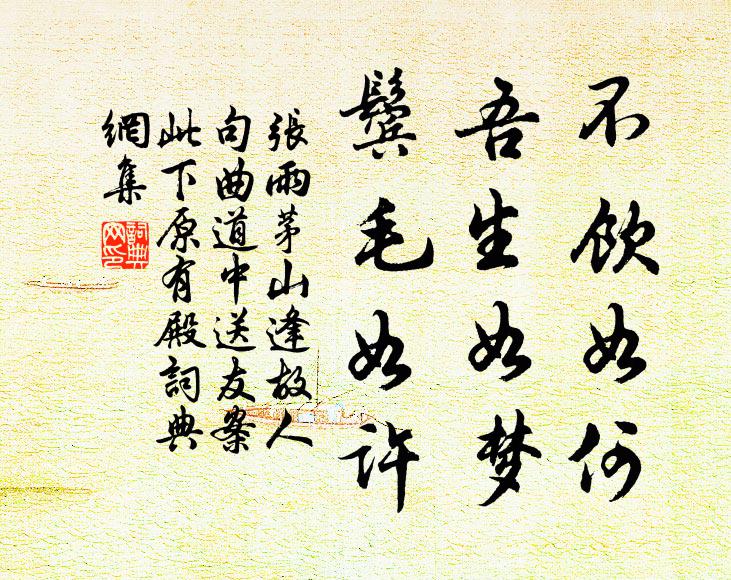 不飲如何
吾生如梦
鬓毛如許
張雨茅山逢故人
句曲道中送友案
此下原有殿詞典
網集
詞典
网印